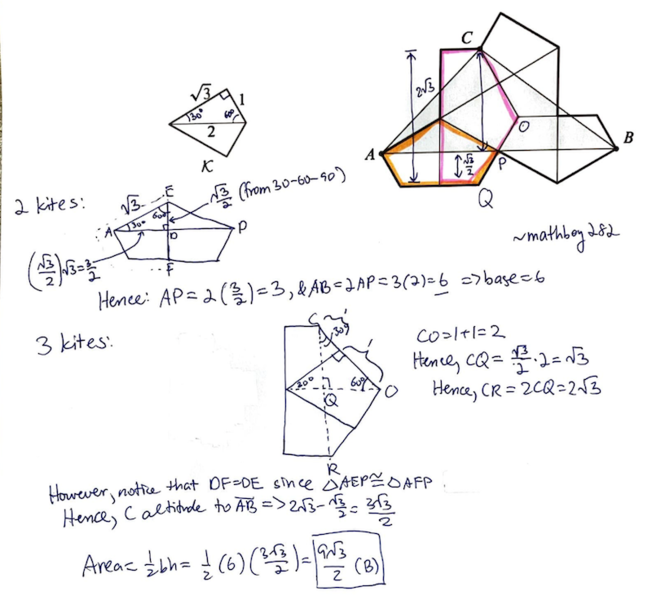 √3
1
30°
60°
2
K
C
2√3
O
A
B
P
√3/2
Q
~mathboy282
2 kites:
√3
E
√3/2 (from 30-60-90)
60°
A
30°
D
P
F
(√3/2)√3=3/2
Hence: AP = 2(3/2)=3, & AB=2AP=3(2)=6 => base=6
3 kites:
C
1
30°
1
30°
60°
O
Q
R
CO=1+1=2
Hence, CQ = √3/2 · 2=√3
Hence, CR = 2CQ=2√3
However, notice that DF=DE since △AEP≅△AFP.
Hence, C altitude to AB => 2√3-√3/2=3√3/2
Area= 1/2bh= 1/2 (6) (3√3/2)= 9√3/2 (B)